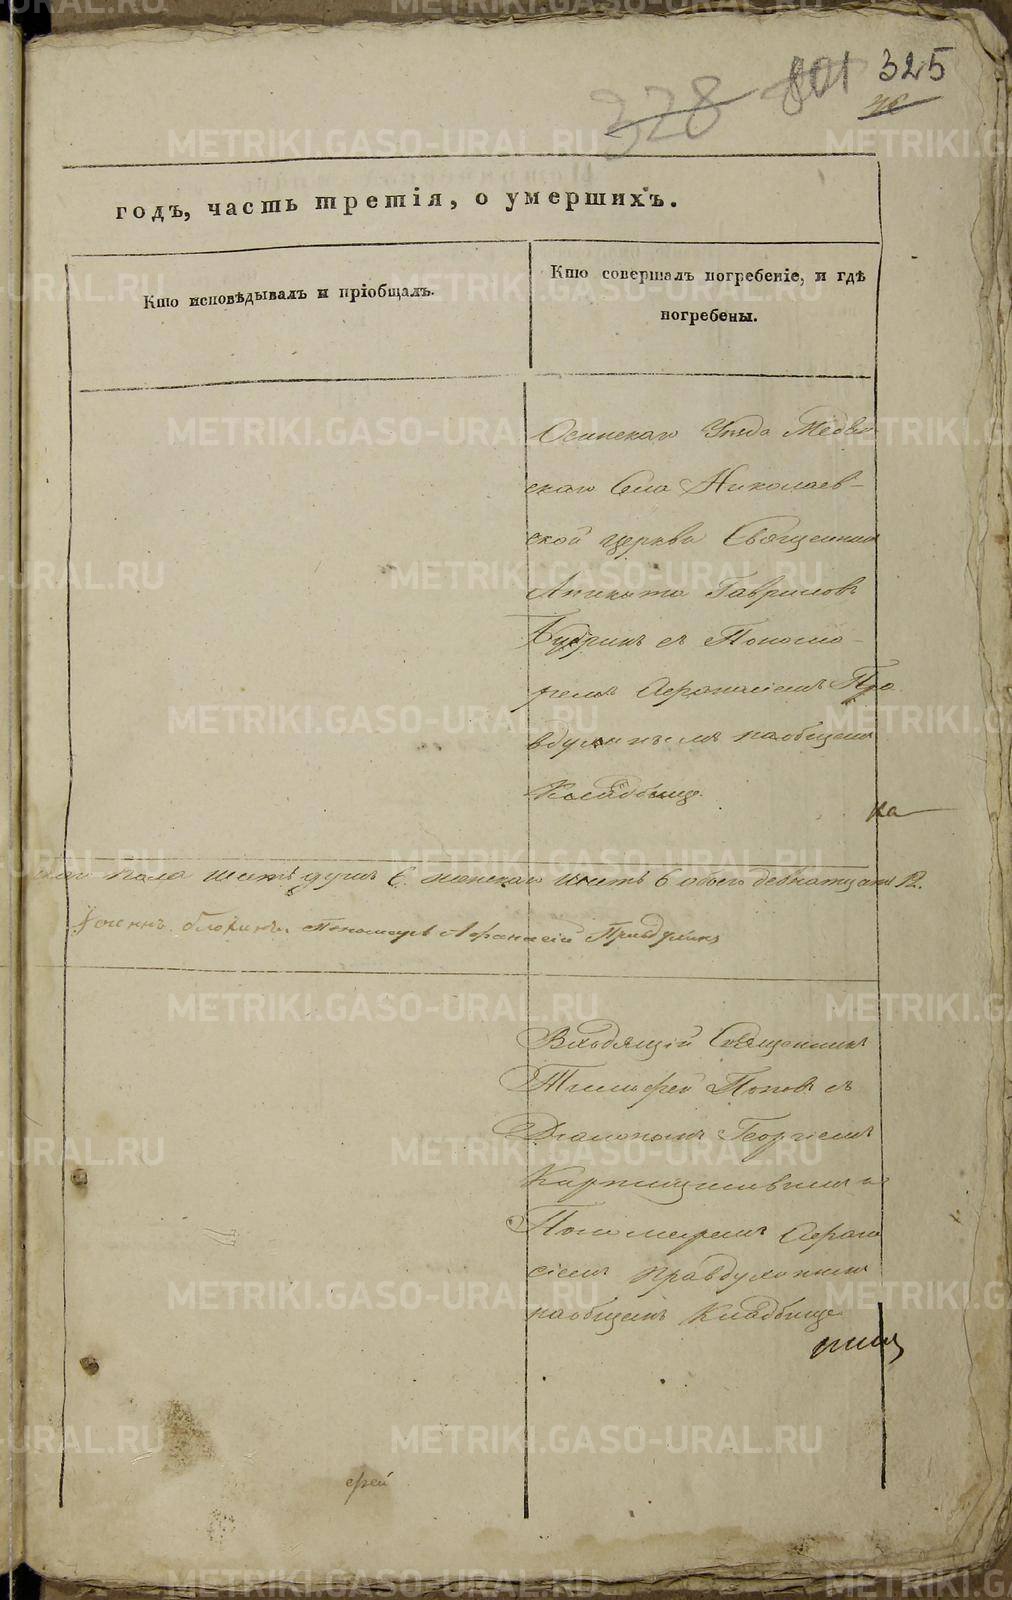 328 801 325
годъ, часть третія, о умершихъ.
Кто исповѣдывалъ и пріобщалъ.
Кто совершалъ погребеніе, и гдѣ
погребены.
Осинскаго Уѣзда Медвѣ-
скаго Села Николаев-
ской церкви Священникъ
Гавриловъ
Будринъ съ Понома-
ремъ Афанасіемъ Пра
вдухинымъ наобщемъ
Кладбище.
ка
пола шесть душъ 6. женскаго шесть 6 обоего двенатцать 12.
Пономарь Афанасій Правдухинъ
Входящій Священникъ
Тимофей Поповъ съ
Діакономъ Георгіемъ
и
Пономаремъ Афана
сіемъ Правдухинымъ
наобщемъ Кладбище
ерей
METRIKI.GASO-URAL.RU